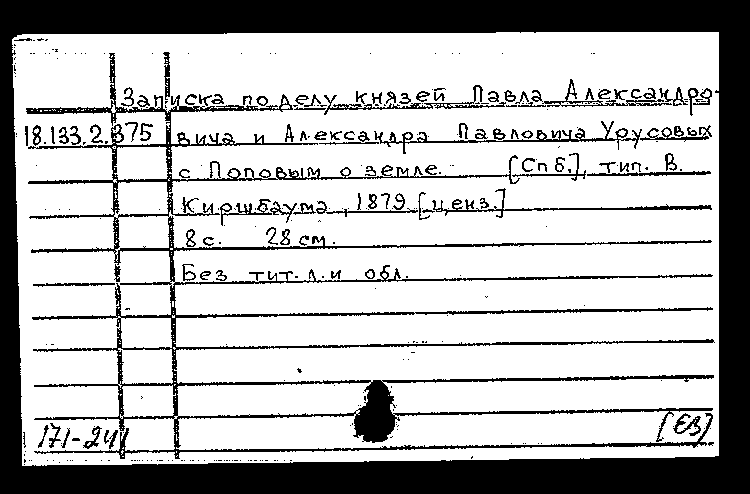 Записка по делу князей Павла Александро-
18.133.2.375 вича и Александра Павловича Урусовых
с Поповым о земле. [Спб.], тип. В.
Киршбаума, 1879 [ценз.]
8 с. 28 см.
Без тит. л. и обл.
171-241 [ЕВ]